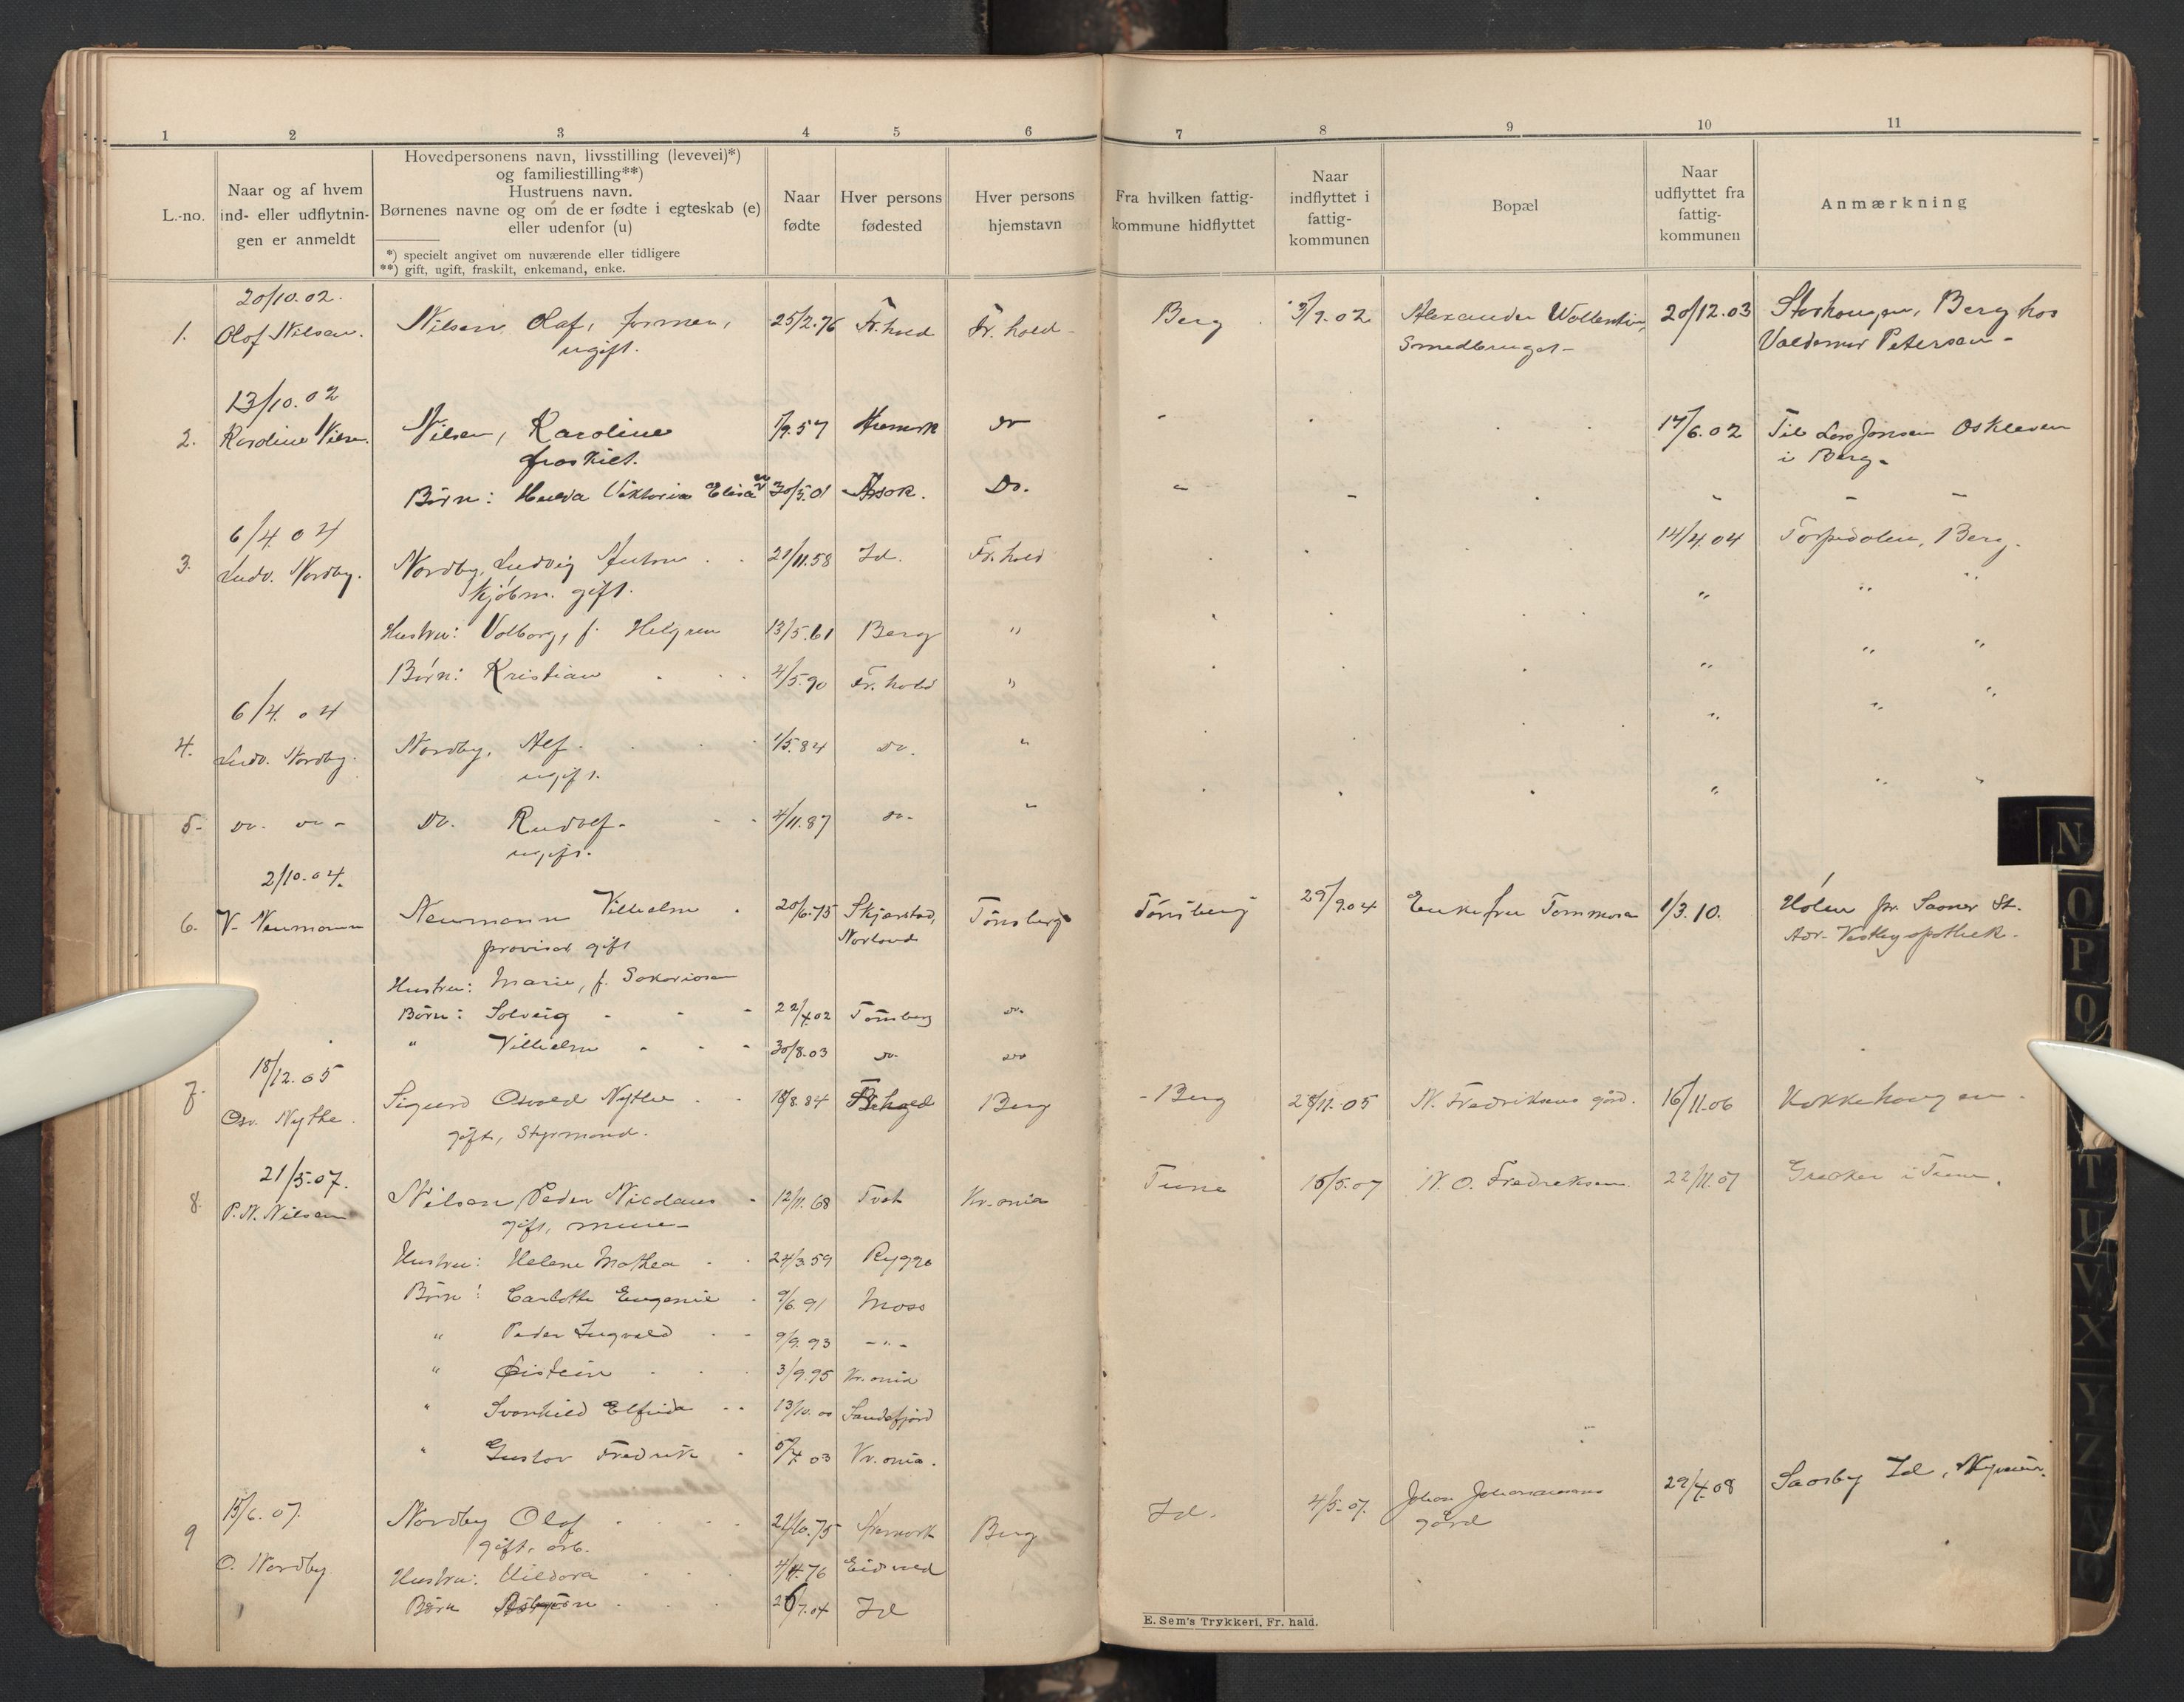 1 2 3 4 5 6 7 8 9 10 11
L.-no.
Naar og af hvem
ind- eller udflytnin-
gen er anmeldt
Hovedpersonens navn, livsstilling (levevei)*)
og familiestilling**)
Hustruens navn.
Børnenes navne og om de er fødte i egteskab (e)
eller udenfor (u)
*) specielt angivet om nuværende eller tidligere
**) gift, ugift, fraskilt, enkemand, enke.
Naar
fødte
Hver persons
fødested
Hver persons
hjemstavn
Fra hvilken fattig-
kommune hidflyttet
Naar
indflyttet i
fattig-
kommunen
Bopæl
Naar
udflyttet fra
fattig-
kommunen
Anmærkning
20/10.02.
1. Olof Nilsen. Nilsen, Olaf, former, 25/2.76 Fr.hald Fr. hald - Berg 3/9.02 Alexander Wollentin, 20/12.03 Berg hos
ugift. Smedbruget - Valdemar Petersen -
13/10.02
2. Karoline Nilsen. Nilsen, Karoline 1/9.57 Aremark Do 17/6.02 Til Lars Jonsen Oskleven
fraskilt. i Berg -
Børn: Hulda Viktoria Elisa 30/5.01 Do.
6/4.04
3. Ludv. Nordby. Nordby, Ludvig Anton 21/11.58 Id. Fr.hald 14/4.04 Torpedalen, Berg.
Kjøbm. gift. " "
Hustru: Valborg, f. Helgren 13/5.61 Berg " " "
Børn: Kristian 4/5.90 Fr.hald " " "
6/4.04
4. Ludv. Nordby. Nordby, Alf. 1/5.84 do. " " "
ugift.
5- do. do - Do. Rudolf. 4/11.87 do - " " "
ugift.
2/10.04.
6. V. Neumann Neumann Vilhelm 20/6.75 Skjærstad, Tønsberg Tønsberg 29/9.04 Enkefru Tommesen 1/3.10. Hølen pr. Saaner St.
provisor gift Norland Adr. Vestby apothek.
Hustru: Marie, f. Sakariasen
Børn: Solveig - - - 22/4.02 Tønsberg do.
" Vilhelm - - - 30/8.03 do. do
18/12.05
7. Osv. Nythe. Sigurd Osvald Nythe 18/8.84 Fr.hald Berg - Berg 28/11.05 N. Fredriksens gård. 16/11.06 Kokkehaugen.
gift, Styrmand.
21/5.07.
8. P. N. Nilsen Nilsen Peder Nicolaus 12/11.68 Tvet Kr.ania Tune 15/5.07 N. O. Fredriksen. 22/11.07 Greaker i Tune.
gift, murer -
Hustru: Helene Mathea 24/3.59 Rygge
Børn: Carlotte Eugenie 9/6.91 Moss
" Peder Ingvald 9/9.93 - " -
" Øistein 3/9.95 Kr.ania
" Svanhild Elfrida 13/10.00 Sandefjord
" Gustav Fredrik 5/4.03 Kr.ania.
15/6.07.
9 O. Nordby Nordby Olaf 21/10.75 Aremark Berg Id. 4/5.07. Johan Johannesens 29/4.08 Id,
gift, arb. gård
Hustru: Hildora 4/4.76 Eidsvold
Børn Asbjørn 26/7.04 Id
N
O
P
Q
T
U
V
X
Y
Z
E. Sem's Trykkeri, Fr. hald.